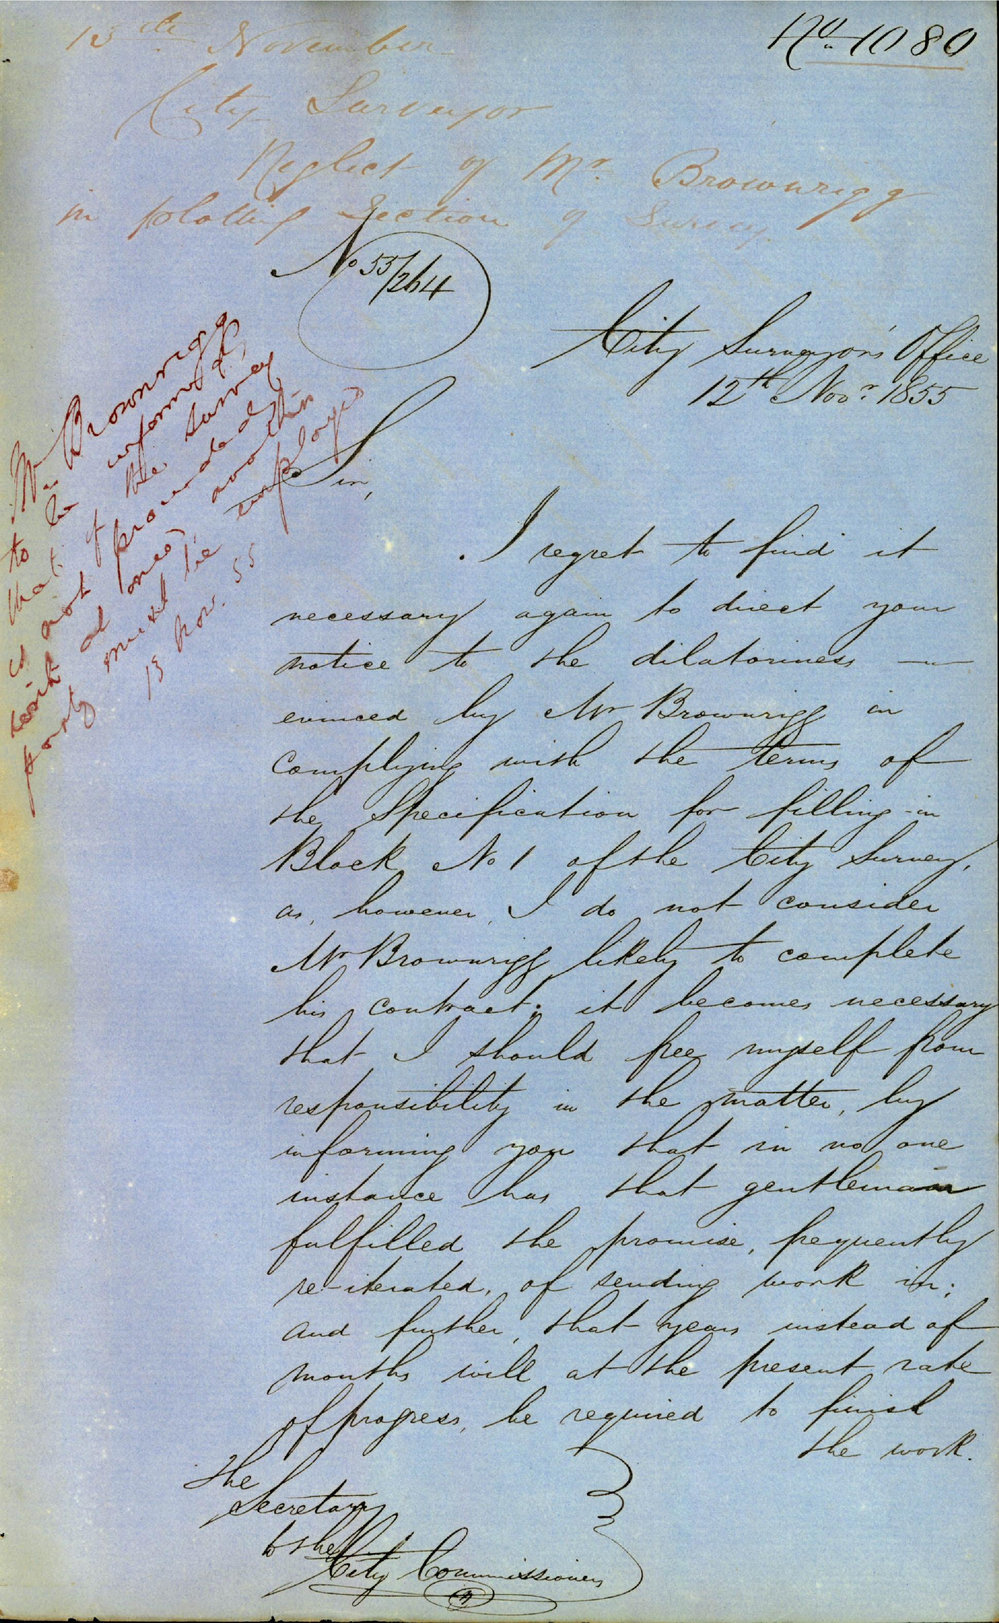 No. 1080
13th November
City Surveyor
Neglect of Mr. Brownrigg
in plotting Section of Survey.
No 55/264
City Surveyor's Office
12th Novr. 1855
Mr Brownrigg
to be informed
that if the survey
is not proceeded
with at once, another
party must be employed
13 Nov. 55
Sir,
I regret to find it
necessary again to direct your
notice to the dilatoriness —
evinced by Mr Brownrigg in
complying with the terms of
the Specification for filling-in
Block No 1 of the City Survey,
as, however, I do not consider
Mr Brownrigg likely to complete
his contract; it becomes necessary
that I should free myself from
responsibility in the matter, by
informing you that in no one
instance has that gentleman
fulfilled the promise, frequently
re-iterated, of sending work in;
and further, that years instead of
months will at the present rate
of progress, be required to finish
the work.
The
Secretary
to the
City Commissioners